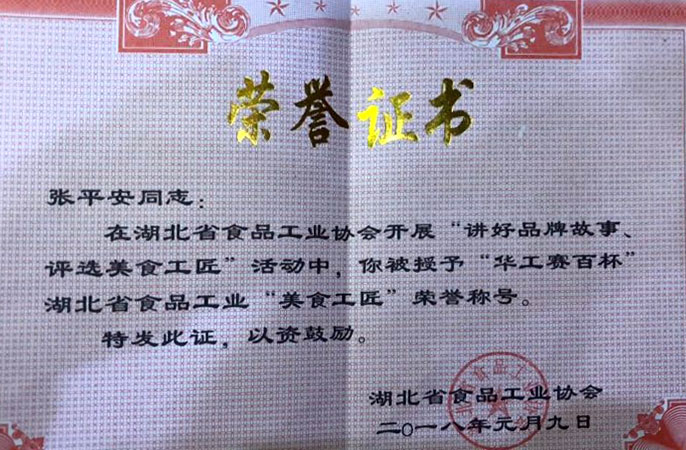 荣誉证书
张平安同志：
在湖北省食品工业协会开展“讲好品牌故事、
评选美食工匠”活动中，你被授予“华工赛百杯”
湖北省食品工业“美食工匠”荣誉称号。
特发此证，以资鼓励。
湖北省食品工业协会
二〇一八年元月九日